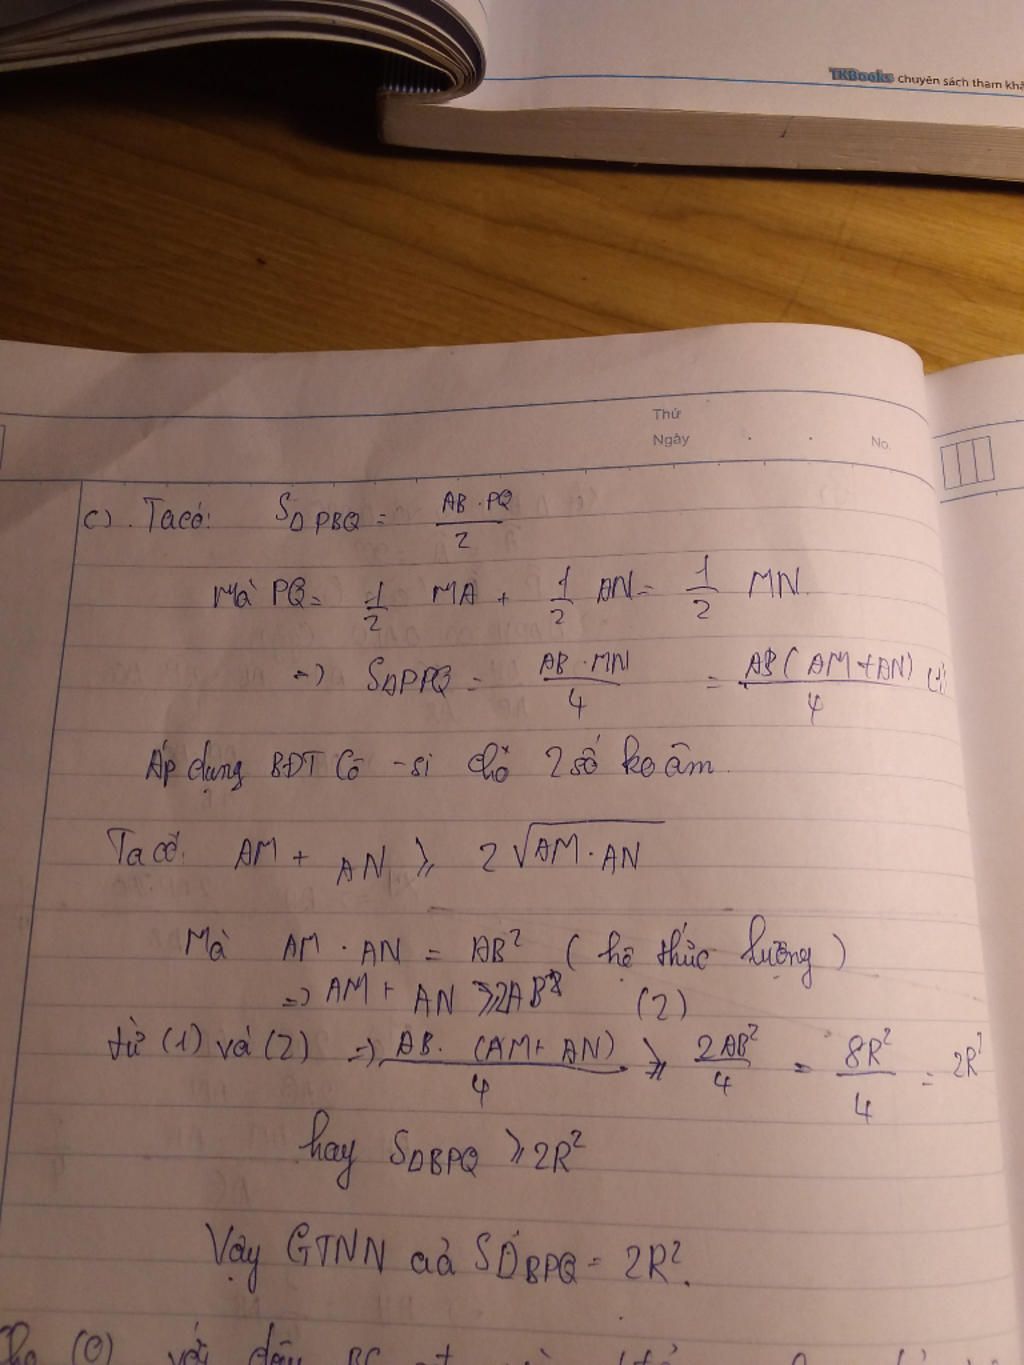 TKBooks chuyên sách tham khả
Thứ
Ngày . . No.
c). Ta có: SΔPBQ = AB.PQ/2
Mà PQ = 1/2 MA + 1/2 AN = 1/2 MN.
=) SΔPPQ = AB.MN/4 = AB(AM+AN)/4 (1)
Áp dụng BĐT Cô-si cho 2 số ko âm.
Ta có: AM + AN ⩾ 2√AM.AN
Mà AM . AN = AB² (hệ thức lượng)
=) AM + AN ⩾ 2AB (2)
từ (1) và (2) =) AB.(AM+AN)/4 ⩾ 2AB²/4 = 8R²/4 = 2R²
hay SΔBPQ ⩾ 2R²
Vậy GTNN của SΔBPQ = 2R².
(O) với dây BC